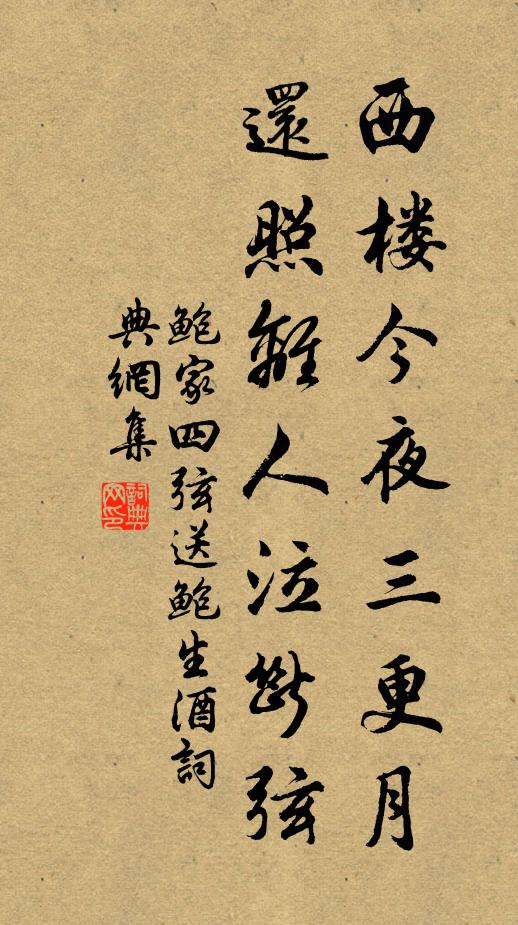 西楼今夜三更月
還照離人泣斷弦
鮑家四弦送鮑生酒詞
典網集
詞典网印